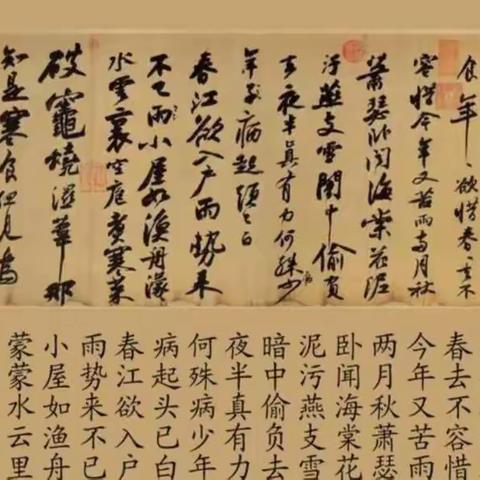 食年〻欲惜春〻去不
容惜今年又苦雨兩月秋
蕭瑟卧聞海棠花泥
污燕支雪闇中偷負
去夜半真有力何殊少病
年子病起頭已白
春江欲入户雨勢来
不已雨小屋如漁舟濛〻
水雲裏空庖煮寒菜
破竈燒濕葦那
知是寒食但見烏
春去不容惜
今年又苦雨
两月秋萧瑟
卧闻海棠花
泥污燕支雪
暗中偷负去
夜半真有力
何殊病少年
病起头已白
春江欲入户
雨势来不已
小屋如渔舟
蒙蒙水云里